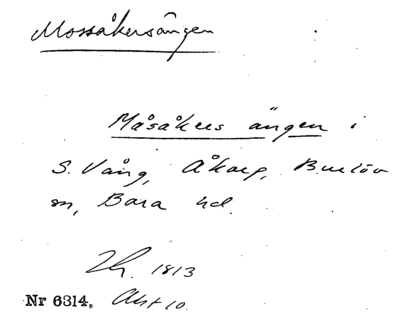 Mossåkersängen
Måsåkers ängen i
S. Vång, Åkarp, Burlöv
sn, Bara hd.
1813
Nr 6314. Akt 10